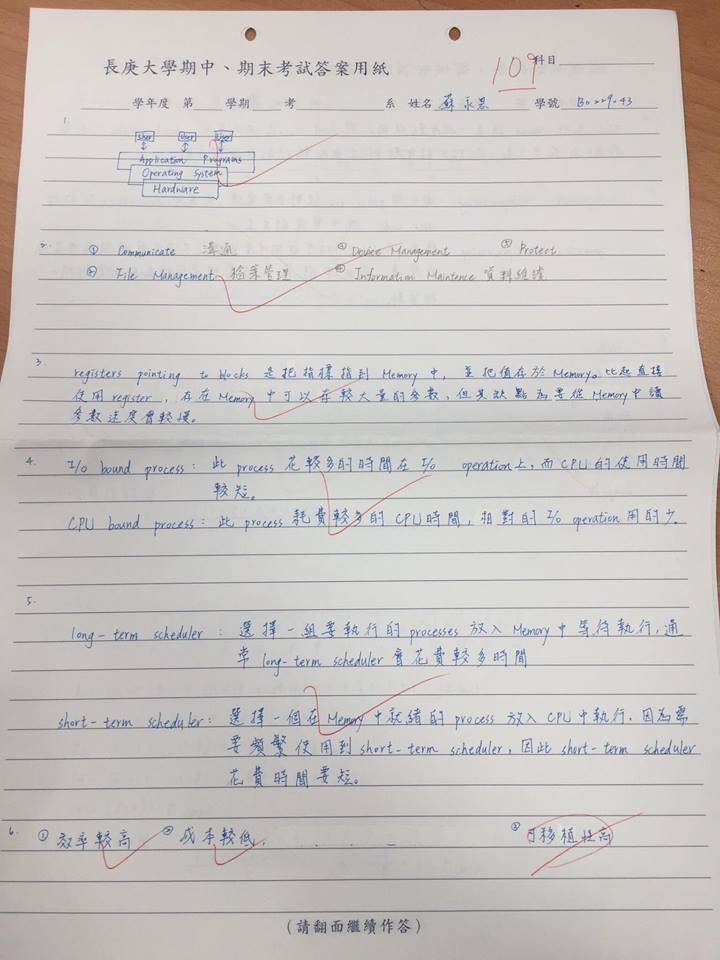 長庚大學期中、期末考試答案用紙
109
科目
學年度 第 學期 考 系 姓名 蘇永恩 學號
1.
User User User
Application Programs
Operating System
Hardware
2. ① Communicate 溝通 Device Management ⑤ Protect
② File Management 檔案管理 ④ Information Maintence 資料維護
3. registers pointing to blocks 是把指標指到 Memory 中, 並把值存於Memory。比起直接
使用register, 存在Memory 中可以存較大量的參數, 但其缺點為要從Memory中讀
參數速度會較慢。
4. I/o bound process: 此 process 花較多的時間在 I/o operation上, 而CPU的使用時間
較短。
CPU bound process: 此 process 耗費較多的 CPU時間, 相對的 I/o operation 用的少。
5.
long-term scheduler: 選擇一組要執行的processes 放入 Memory 中 等待執行, 通
常 long-term scheduler 會花費較多時間
short-term scheduler: 選擇一個在Memory中就緒的process 放入 CPU 中執行. 因為需
要頻繁使用到short-term scheduler, 因此 short-term scheduler
花費時間要短。
6. ① 效率較高 ② 成本較低. ③ 可移植性高
(請翻面繼續作答)